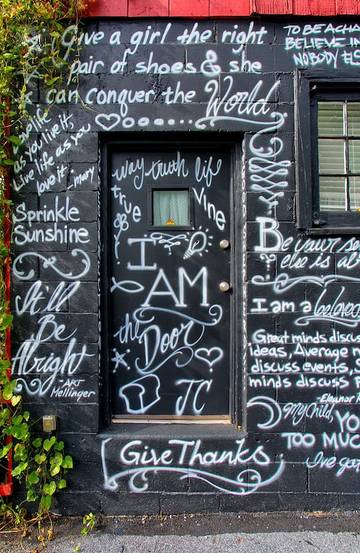 Give a girl the right
pair of shoes & she
can conquer the World
TO BE A CHA
BELIEVE IN
NOBODY ELS
Love life
as you live it.
Live life as you
love it.
Sprinkle
Sunshine
It'll
Be
Alright
ART
Mellinger
way truth life
true
vine
I
AM
the
Door
JC
Give Thanks
Be your se
else is al
I am a beloved
Great minds discus
ideas, Average m
discuss events, S
minds discuss p
-Eleanor R
My Child, YO
TOO MUC
I've go